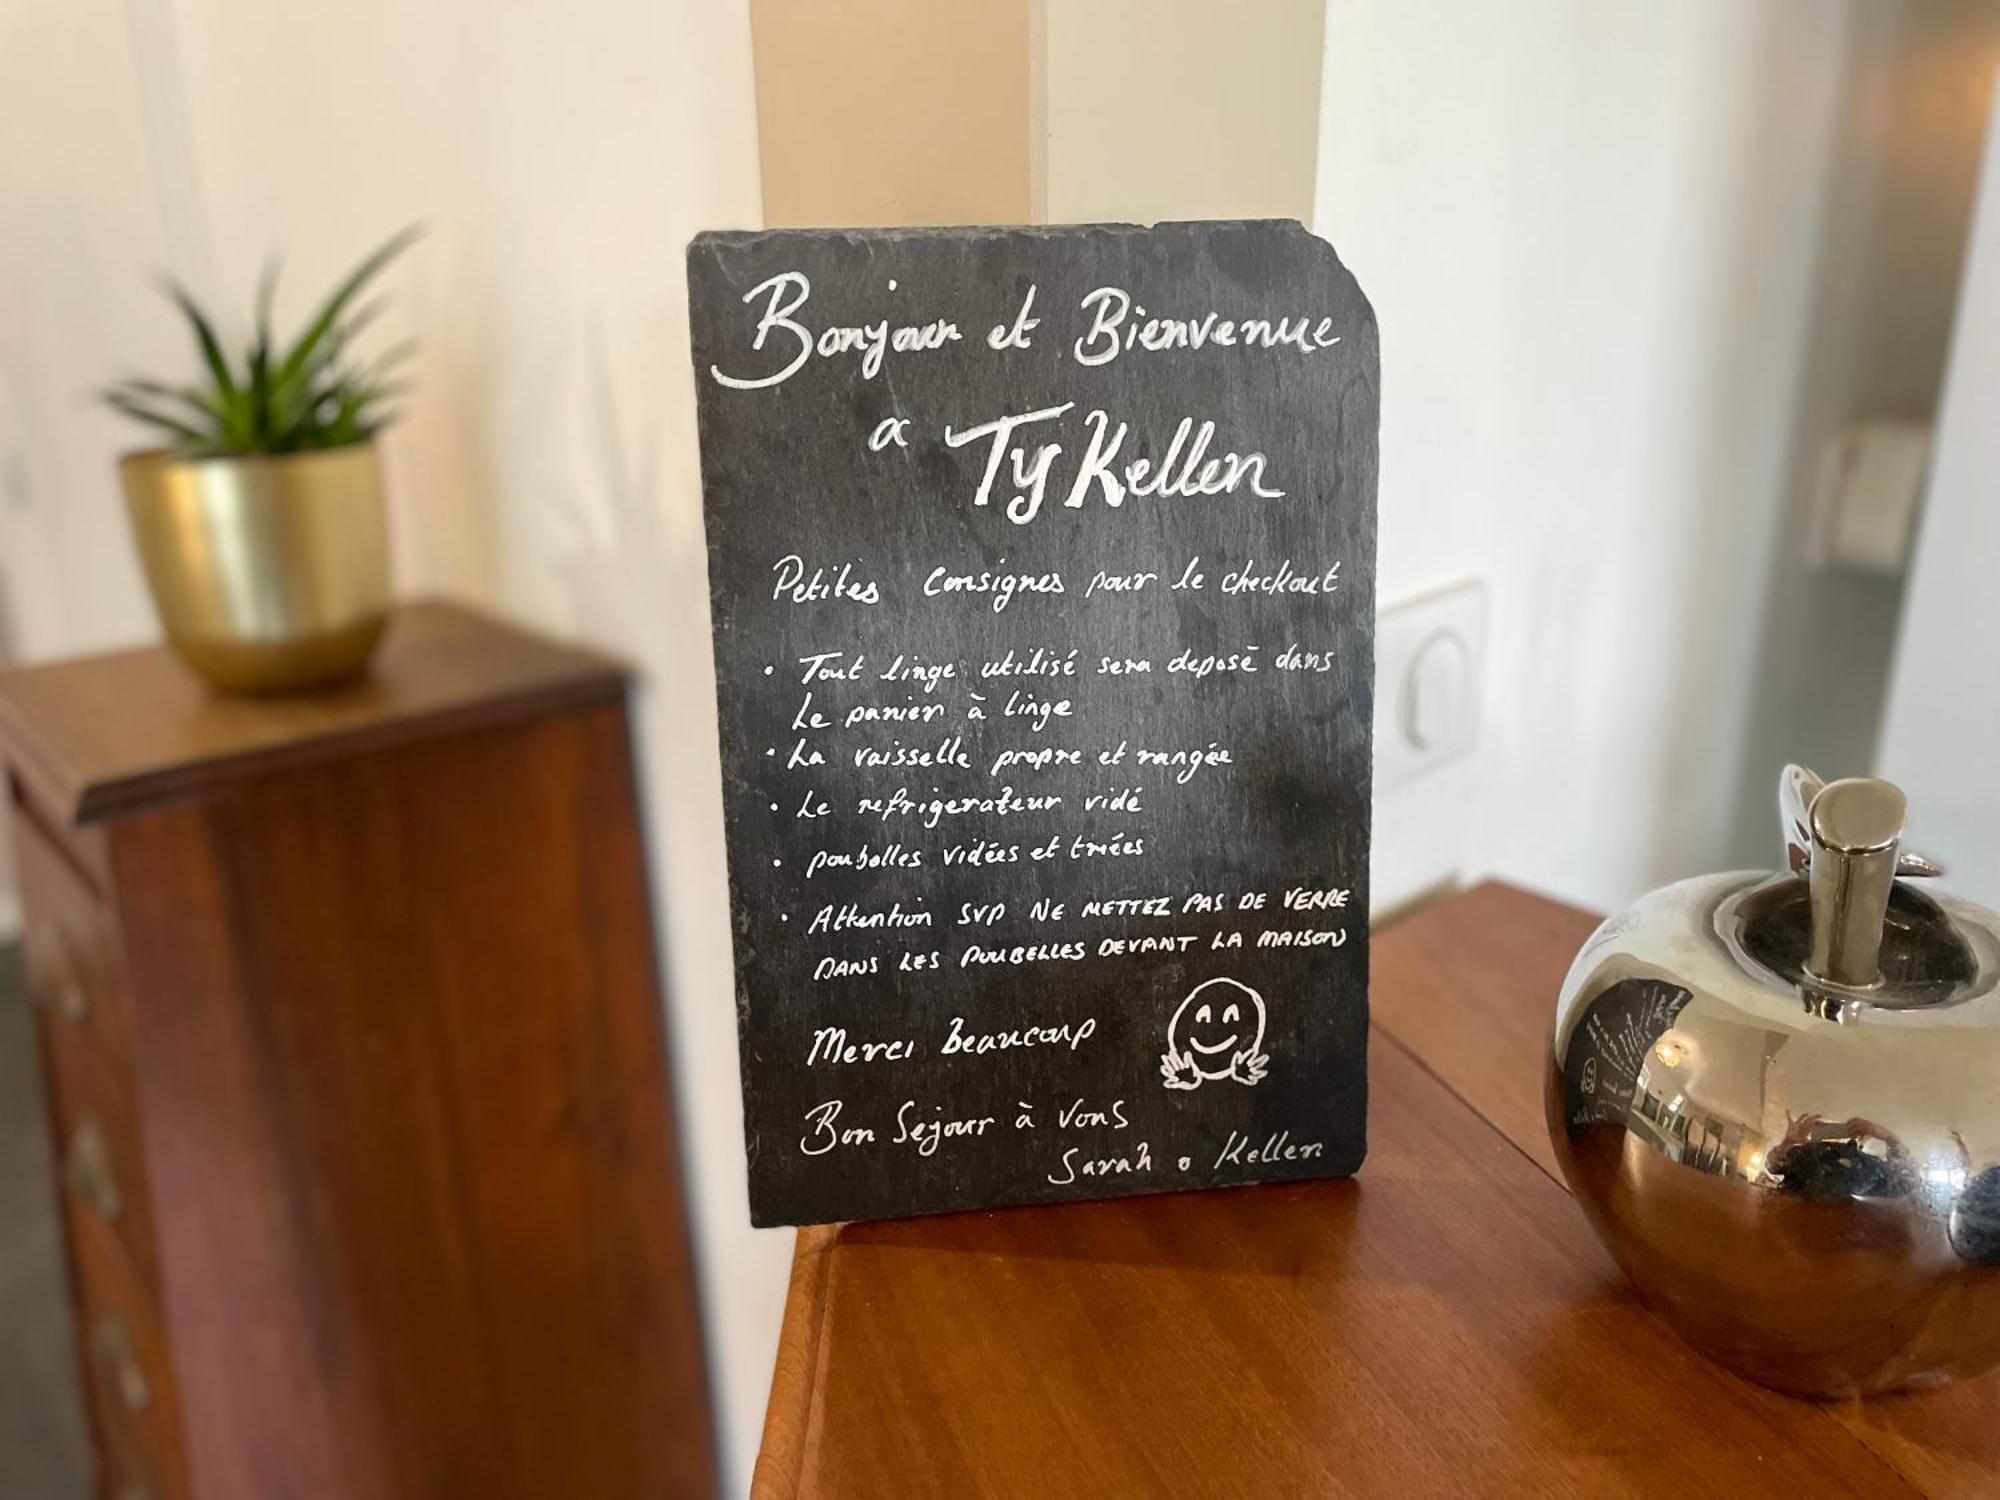 Bonjour et Bienvenue
a Ty Kellen
Petites consignes pour le checkout
• Tout linge utilisé sera deposé dans
Le panier à linge
• La vaisselle propre et rangée
• Le refrigerateur vidé
• poubelles vidées et triées
• Attention SVP NE METTEZ PAS DE VERRE
DANS LES POUBELLES DEVANT LA MAISON
Merci Beaucoup
Bon Sejour à Vous
Sarah o Kellen